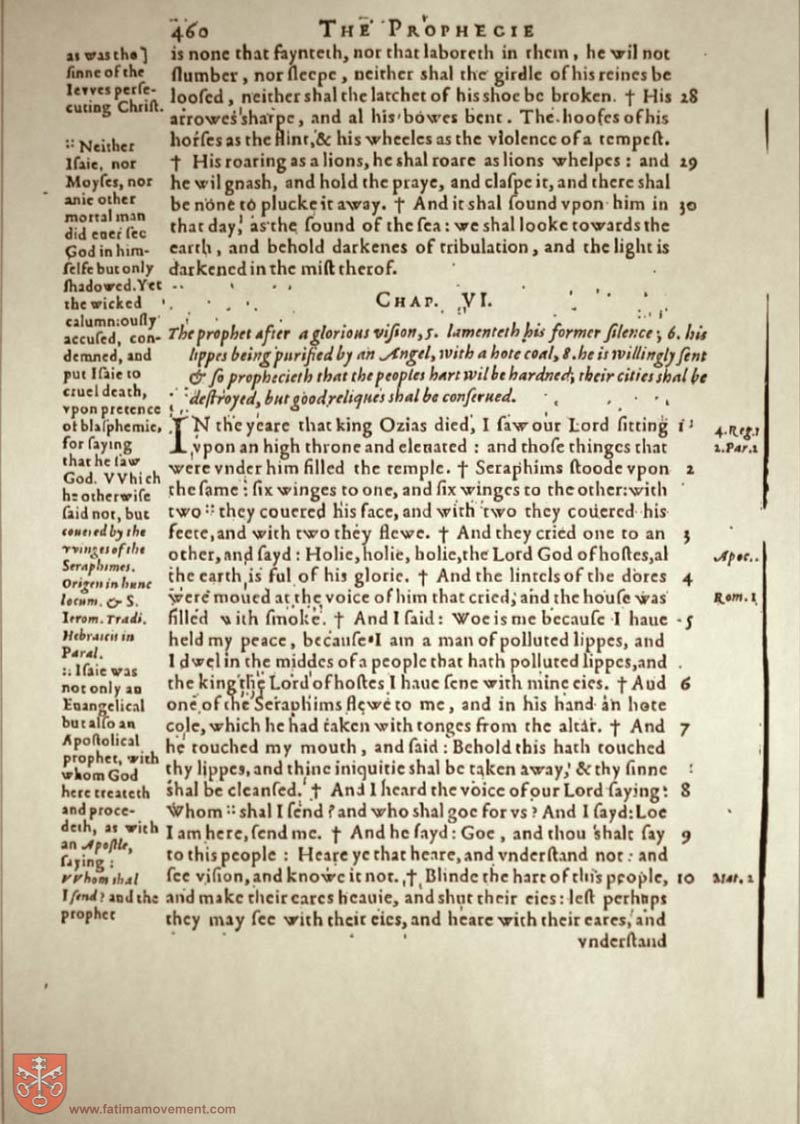 460 THE PROPHECIE
is none that faynteth, nor that laboreth in them, he wil not
ſlumber, nor ſleepe, neither shal the girdle of his reines be
looſed, neither shal the latchet of his shoe be broken. † His 28
arrowes sharpe, and al his bowes bent. The hoofes of his
horſes as the flint, & his wheeles as the violence of a tempeſt.
† His roaring as a lions, he shal roare as lions whelpes: and 29
he wil gnash, and hold the praye, and claſpe it, and there shal
be none to plucke it away. † And it shal ſound vpon him in 30
that day, as the ſound of the ſea: we shal looke towards the
earth, and behold darkenes of tribulation, and the light is
darkened in the miſt therof.
CHAP. VI.
The prophet after a glorious viſion, 5. lamenteth his former ſilence; 6. his
lippes being purified by an Angel, with a hote coal, 8. he is willingly ſent
& ſo prophecieth that the peoples hart wil be hardned; their cities shal be
deſtroyed, but good reliques shal be conſerued.
IN the yeare that king Ozias died, I ſaw our Lord ſitting 1
vpon an high throne and eleuated: and thoſe thinges that
were vnder him filled the temple. † Seraphims ſtoode vpon 2
the ſame: ſix winges to one, and ſix winges to the other: with
two :: they couered his face, and with two they couered his
feete, and with two they flewe. † And they cried one to an 3
other, and ſayd: Holie, holie, holie, the Lord God of hoſtes, al
the earth is ful of his glorie. † And the lintels of the dores 4
were moued at the voice of him that cried, and the houſe was
filled with ſmoke. † And I ſaid: Woe is me becauſe I haue 5
held my peace, becauſe I am a man of polluted lippes, and
I dwel in the middes of a people that hath polluted lippes, and
the king the Lord of hoſtes I haue ſene with mine eies. † And 6
one of the Seraphims flewe to me, and in his hand an hote
cole, which he had taken with tonges from the altar. † And 7
he touched my mouth, and ſaid: Behold this hath touched
thy lippes, and thine iniquitie shal be taken away, & thy ſinne
shal be cleanſed. † And I heard the voice of our Lord ſaying: 8
Whom :: shal I ſend? and who shal goe for vs? And I ſayd: Loe
I am here, ſend me. † And he ſayd: Goe, and thou shalt ſay 9
to this people: Heare ye that heare, and vnderſtand not: and
ſee viſion, and knowe it not. † Blinde the hart of this people, 10
and make their eares heauie, and shut their eies: leſt perhaps
they may ſee with their eies, and heare with their eares, and
vnderſtand
as was the]
ſinne of the
Ievves perſe-
cuting Chriſt.
:: Neither
Iſaie, nor
Moyſes, nor
anie other
mortal man
did euer ſee
God in him-
ſelfe but only
shadowed. Yet
the wicked
calumniouſly
accuſed, con-
demned, and
put Iſaie to
cruel death,
vpon pretence
of blaſphemie,
for ſaying
that he ſaw
God. VVhich
he otherwiſe
ſaid not, but
couered by the
vvinges of the
Seraphimes.
Origen in hunc
locum. & S.
Ierom. Tradi.
Hebraicis in
Paral.
:: Iſaie was
not only an
Euangelical
but alſo an
Apoſtolical
prophet, with
whom God
here treateth
and proce-
deth, as with
an Apoſtle,
ſaying:
VVhom shal
I ſend? and the
prophet
4. Reg. 1
2. Par. 2
Apoc.
Rom. 1
Mat. 1
www.fatimamovement.com